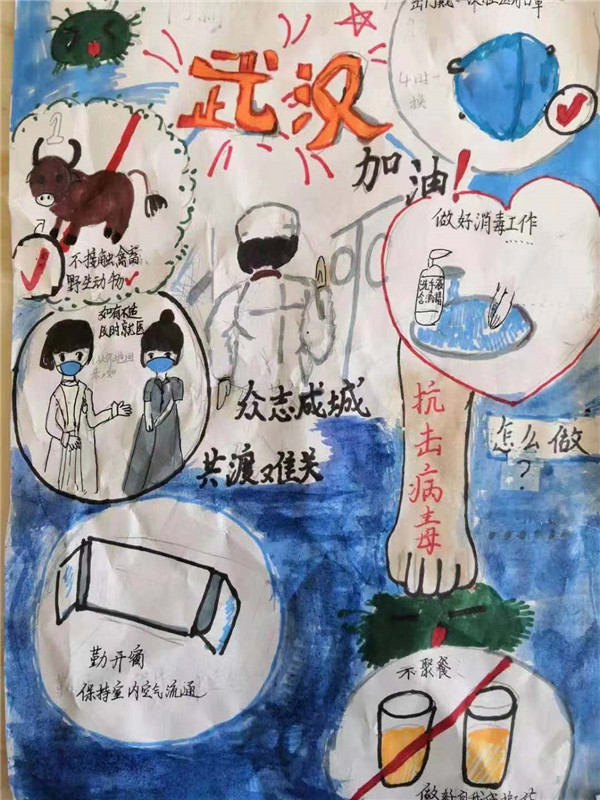 武汉
加油！
4时一
换
1
不接触禽畜
野生动物
做好消毒工作
洗手液
如有不适
及时就医
众志成城
共渡难关
抗击病毒
怎么做
？
勤开窗
保持室内空气流通
不聚餐